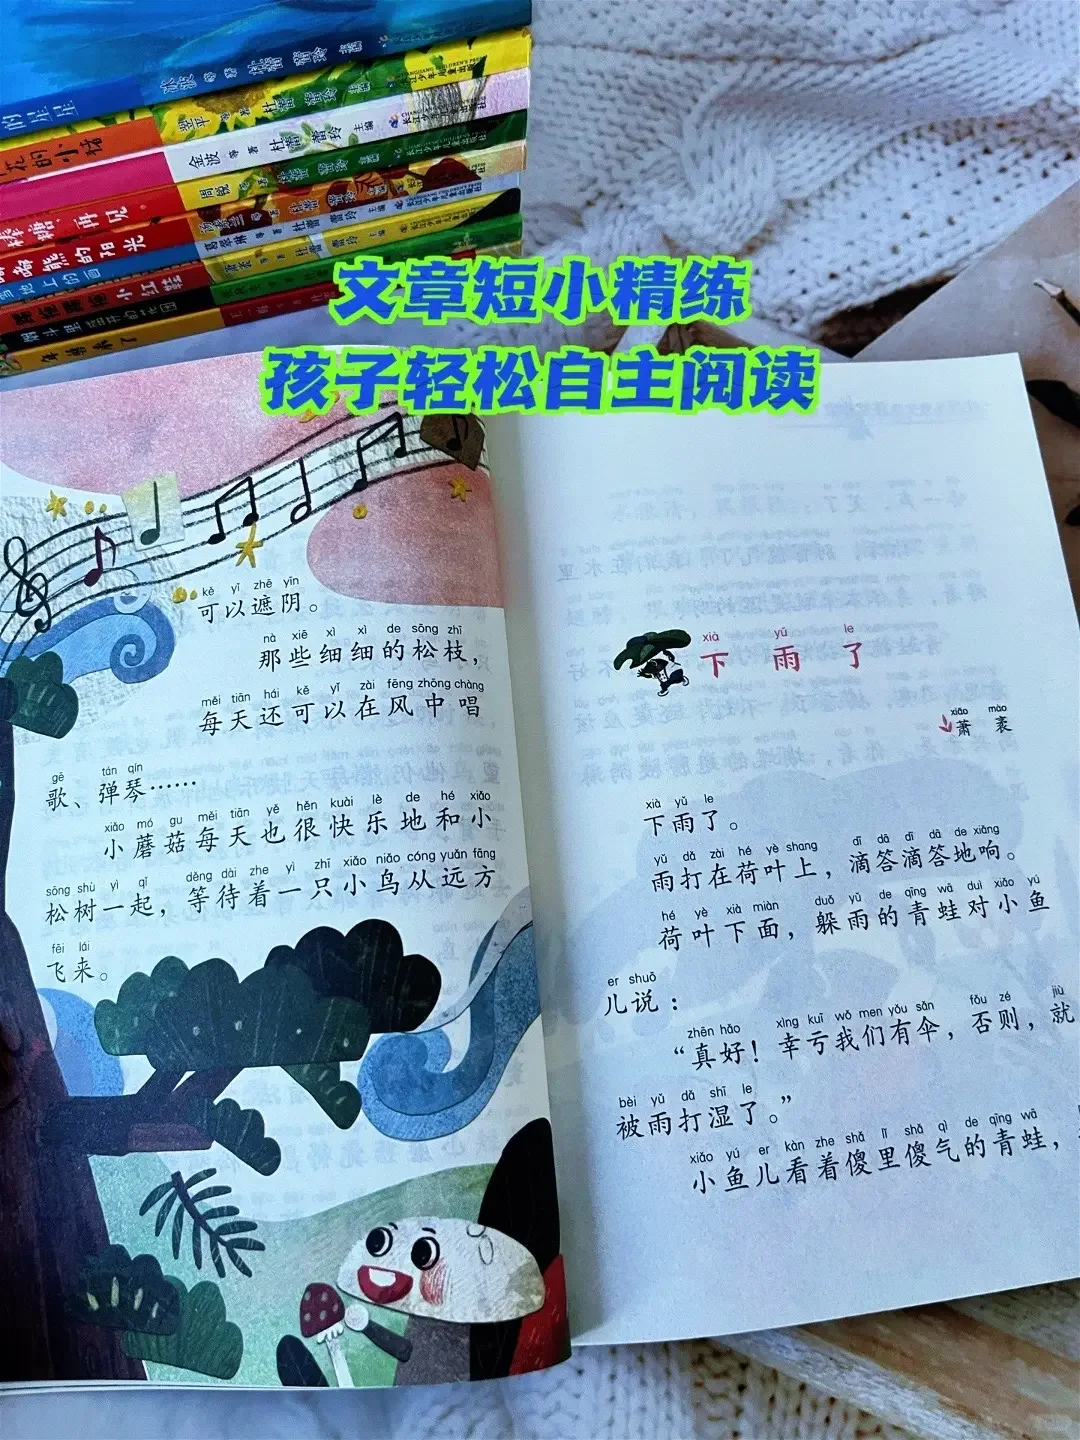 文章短小精练
孩子轻松自主阅读
的星星
金波 等著 杜蕾 蕾玲 主编
花的小猪
再见
熊的阳光
小红鞋
kě yǐ zhē yīn
可以遮阴。
nà xiē xì xì de sōng zhī
那些细细的松枝，
měi tiān hái kě yǐ zài fēng zhōng chàng
每天还可以在风中唱
gē tán qín
歌、弹琴……
xiǎo mó gu měi tiān yě hěn kuài lè de hé xiǎo
小蘑菇每天也很快乐地和小
sōng shù yì qǐ děng dài zhe yì zhī xiǎo niǎo cóng yuǎn fāng
松树一起，等待着一只小鸟从远方
fēi lái
飞来。
xià yǔ le
下雨了
xiāo mào
萧袤
xià yǔ le
下雨了。
yǔ dǎ zài hé yè shang dī dā dī dā de xiǎng
雨打在荷叶上，滴答滴答地响。
hé yè xià miàn duǒ yǔ de qīng wā duì xiǎo yú
荷叶下面，躲雨的青蛙对小鱼
er shuō
儿说：
zhēn hǎo xìng kuī wǒ men yǒu sǎn fǒu zé jiù
“真好！幸亏我们有伞，否则，就
bèi yǔ dǎ shī le
被雨打湿了。”
xiǎo yú er kàn zhe shǎ lǐ shǎ qì de qīng wā
小鱼儿看着傻里傻气的青蛙，